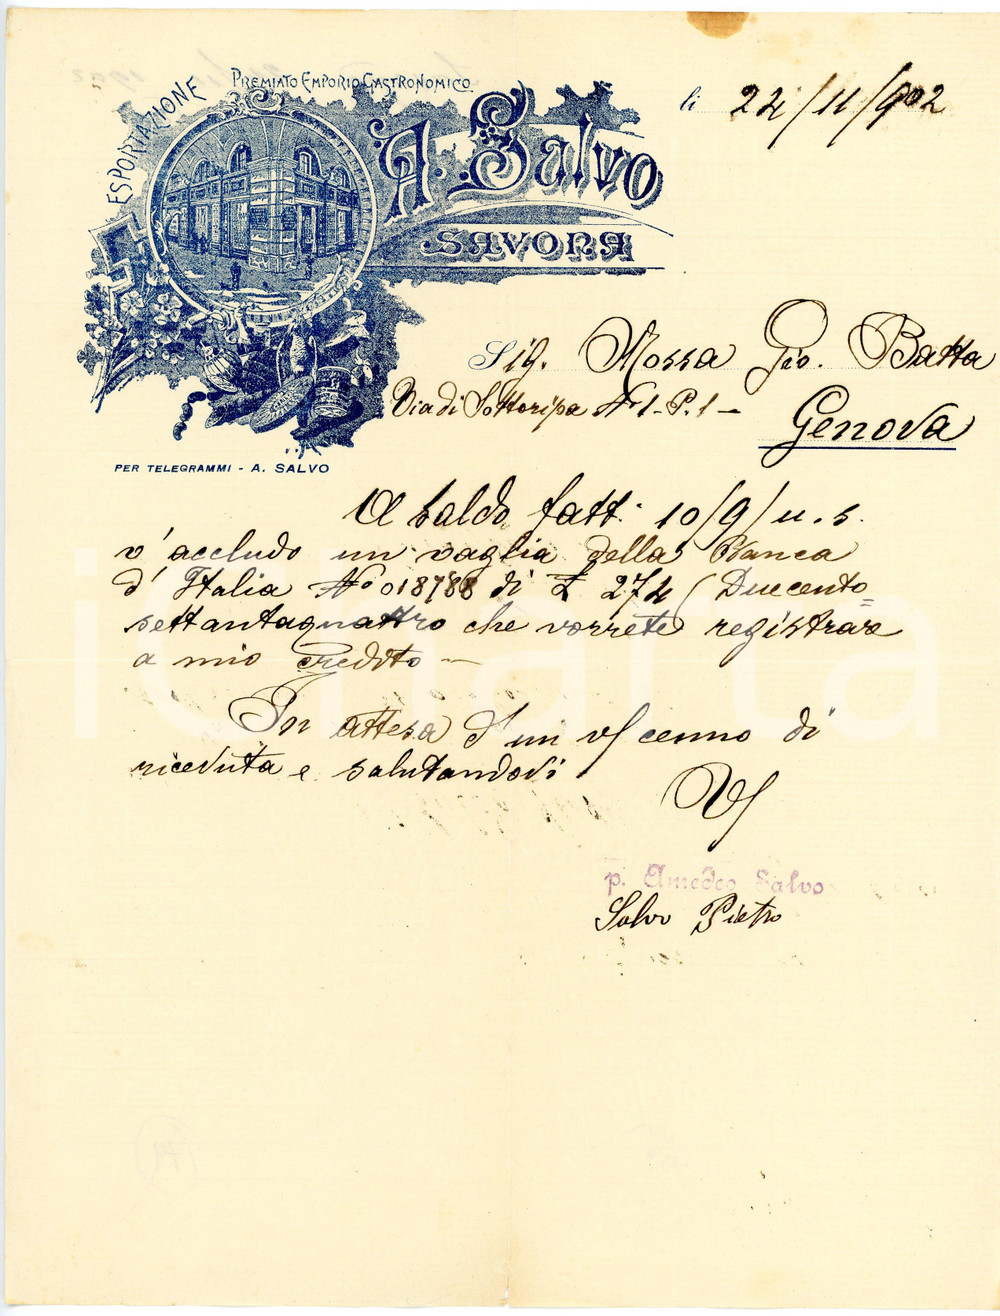 PREMIATO EMPORIO GASTRONOMICO
ESPORTAZIONE
A. Salvo
SAVONA
li 24/11/902
Sig. Mossa Gio. Batta
Via di Sottoripa N° 1 - P. 1 -
Genova
PER TELEGRAMMI - A. SALVO
A saldo fatt. 10/9/u.s.
v'accludo un vaglia della Banca
d'Italia N° 018788 di £ 274 (Duecento
settantaquattro che vorrete registrare
a mio credito -
In attesa d'un v/ cenno di
ricevuta e salutandovi
p. Amedeo Salvo
Salvo Pietro
icharta